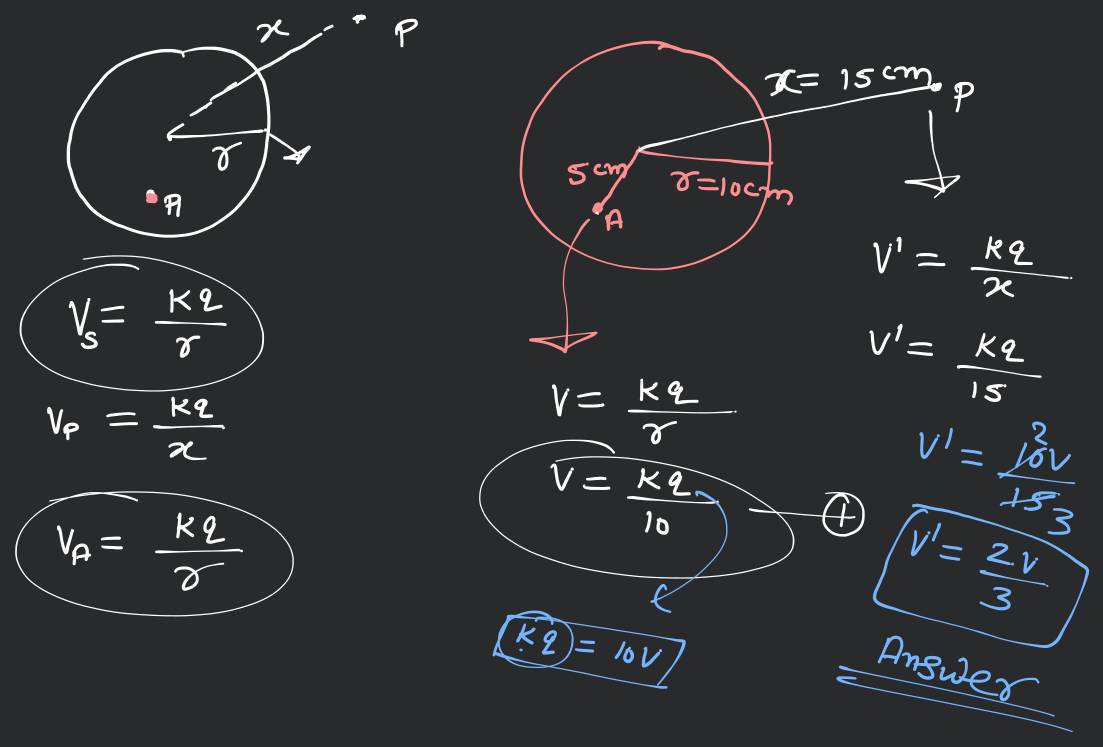 x
P
r
A
V_S = Kq/r
V_P = Kq/x
V_A = Kq/r
x = 15 cm
P
5 cm
r = 10 cm
A
V = Kq/r
V = Kq/10
1
Kq = 10V
V' = Kq/x
V' = Kq/15
V' = 10V/15
2
3
V' = 2V/3
Answer